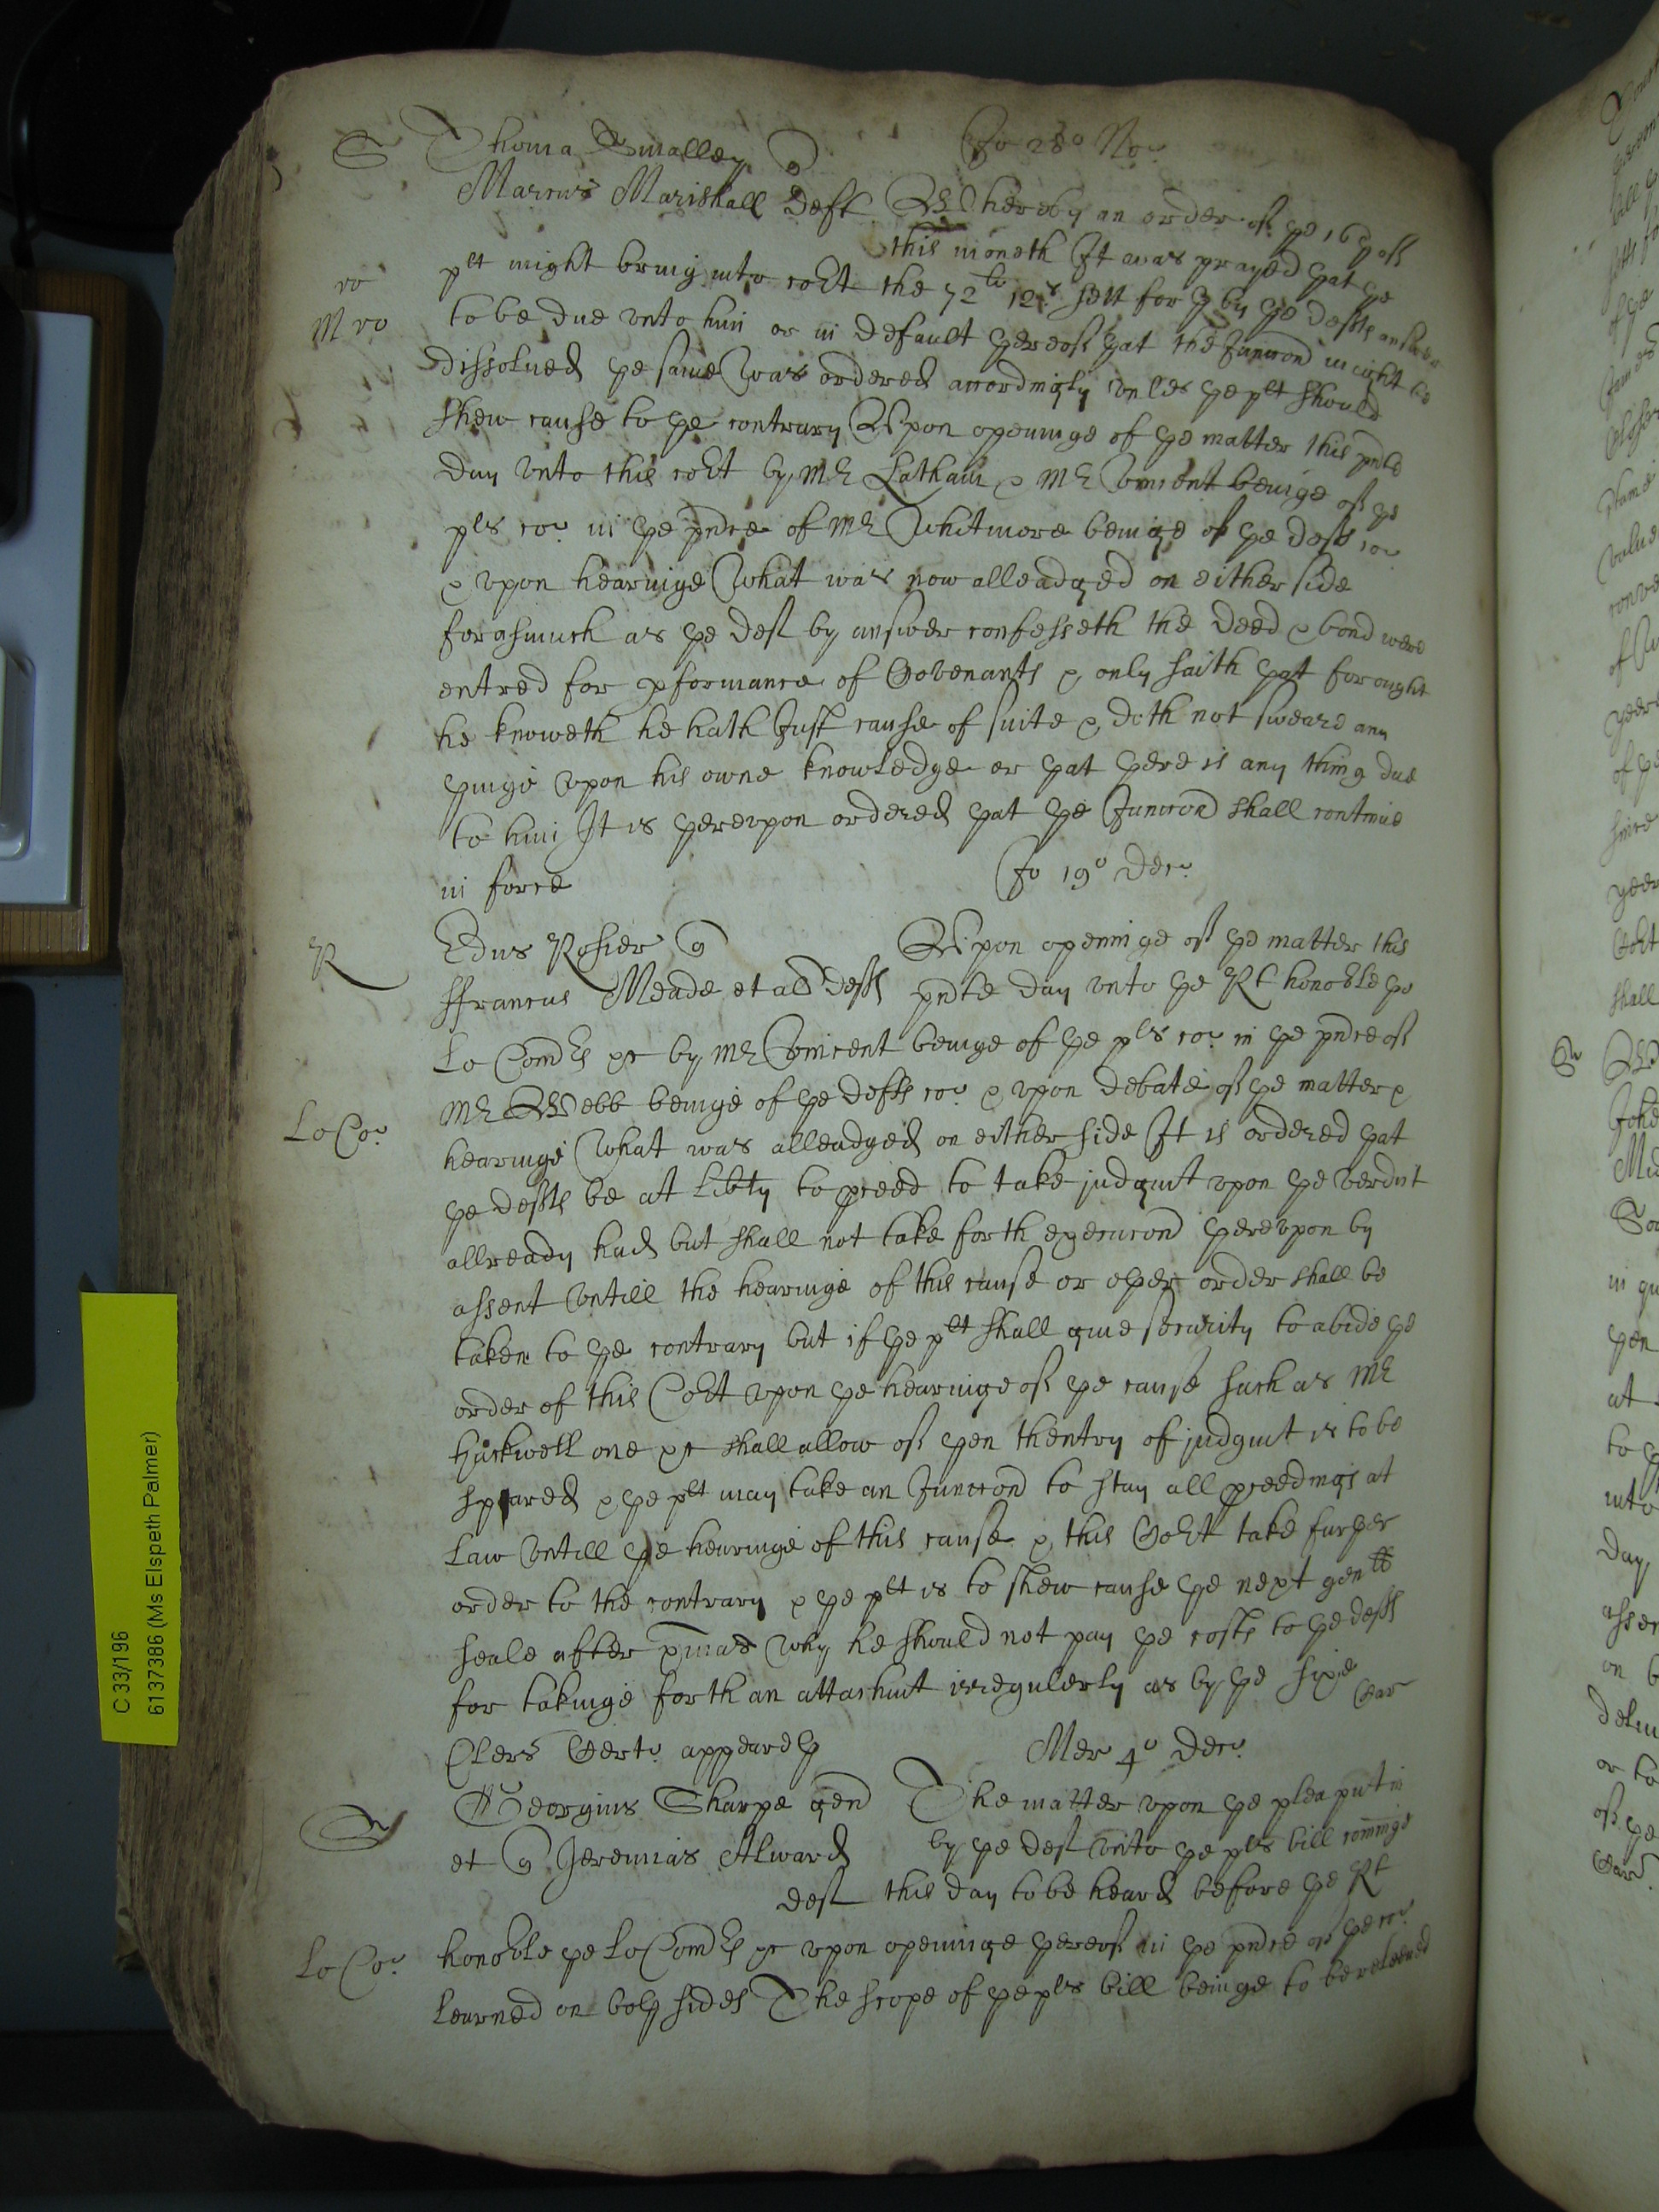 S Thoma Smalley q Jo 28o Nov
Marcus Marishall Deft Whereby an order of ye 16th of
this moneth It was prayed yat ye
ro plt might bring into coĒt the 72li 12s sett forth by ye defts answere
M ro to be due unto him or in default yereof yat the Juncc̃on might be
dissolued ye same was ordered accordingly unles ye plt should
shew cause to ye contrary Upon openinge of ye matter this pñte
day unto this coĒt by Mr Latham & Mr Vincent beinge of ye
pls co: in ye pñce of Mr Whitmore beinge of ye defts co:
& upon hearinge what was now alleadged on either side
forasmuch as ye deft by answer confesseth the deed & bond were
entred for pformance of Covenants & only saith yat for ought
he knoweth he hath Just cause of suite & doth not sweare any
yinge upon his owne knowledge or yat yere is any thing due
to him It is yereupon ordered yat ye Juncc̃on shall continue
in force Jo 19o Dec:
R Edus Rosier q Upon openinge of ye matter this
ffrancus Meade et al defts pñte day unto ye Rt honoble ye
Lo Comrs &c by Mr Vincent beinge of ye pls co: in ye pñce of
Mr Webb beinge of ye defts co: & upon debate of ye matter &
Lo Co: hearinge what was alleadged on either side It is ordered yat
ye defts be at libty to pceed to take judgmt upon ye verdict
allready had but shall not take forth execuc̃on yereupon by
assent untill the hearinge of this cause or oyer order shall be
taken to ye contrary but if ye plt shall giue security to abide ye
order of this CoĒt upon ye hearinge of ye cause such as Mr
Hackwell one &c shall allow of yen thentry of judgmt is to be
spared & ye plt may take an Juncc̃on to stay all pceedings at
Law untill ye hearinge of this cause & this CoĒt take furyer
order to the contrary & ye plt is to shew cause ye next genll
seale after xp̃mas why he should not pay ye costs to ye defts
for takinge forth an attachmt irregulerly as by ye sixe
Clers Certe: appeareth Mer 4o Dec:
Georgius Sharpe gen The matter upon ye plea put in
et q Jeremias Alward by ye deft unto ye pls bill comminge
deft this day to be heard before ye Rt
Lo Co: honoble ye Lo Comrs &c upon openinge yereof in ye pñce of ye co:
learned on boy sides The scope of ye pls bill beinge to be releeved
C 33/196
6137386 (Ms Elspeth Palmer)